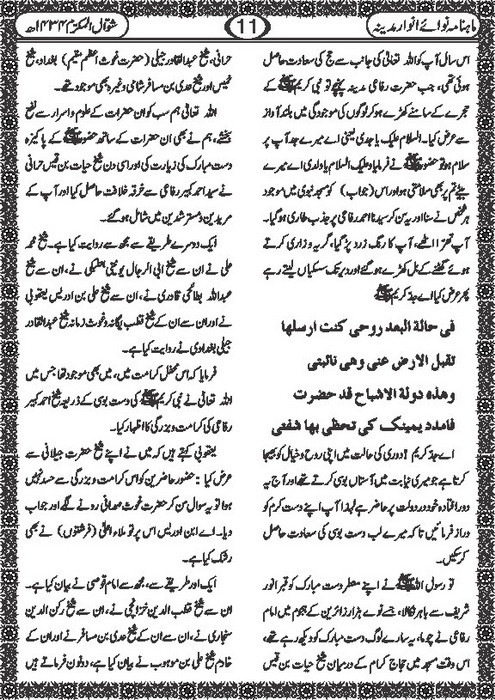 ماہنامہ نوائے انوار مدینہ
11
شوال المکرم ۱۴۳۴ھ
اس سال آپ کو اللہ تعالیٰ کی جانب سے حج کی سعادت حاصل
ہوئی تھی، جب حضرت رفاعی مدینہ پہنچے تو نبی کریم ﷺ کے
حجرے کے سامنے کھڑے ہو کر لوگوں کی موجودگی میں بلند آواز
سے عرض کیا۔ السلام علیک یا جدی یعنی اے میرے جد آپ پر
سلام ہو تو حضور ﷺ نے فرمایا وعلیک السلام یا ولدی اے میرے
بیٹے تم پر بھی سلامتی ہو اور اس (جواب) کو مسجد نبوی میں موجود
ہر شخص نے سنا اور یہ سن کر سیدنا احمد رفاعی پر جذب طاری ہو گیا۔
آپ تھرا اٹھے، آپ کا رنگ زرد پڑ گیا، گریہ و زاری کرتے
ہوئے گھٹنے کے بل کھڑے ہو گئے اور دیر تک سسکیاں لیتے رہے
پھر عرض کیا اے جد کریم ﷺ
فی حالة البعد روحی کنت ارسلها
تقبل الارض عنی وهی نائبتی
وهذه دولة الاشباح قد حضرت
فامدد یمینک کی تحظی بها شفتی
اے جد کریم! دوری کی حالت میں اپنی روح و خیال کو بھیجا
کرتا ہے جو میری نیابت میں آستاں بوسی کرتے تھے اور آج یہ
دور افتادہ خود در دولت پر حاضر ہے لہٰذا آپ اپنے دست کرم کو
دراز فرمائیں تا کہ میرے لب دست بوسی کی سعادت حاصل
کر سکیں۔
تو رسول اللہ ﷺ نے اپنے معطر دست مبارک کو قبر انور
شریف سے باہر نکالا، جسے نوے ہزار زائرین کے ہجوم میں امام
رفاعی نے چوما، یہ سارے لوگ دست مبارک کو دیکھ رہے تھے،
اس وقت مسجد میں حجاج کرام کے درمیان شیخ حیات بن قیس
حرانی، شیخ عبدالقادر جیلی (حضرت غوث اعظم مقیم) بغداد، شیخ
خمیس اور شیخ عدی بن مسافر شامی وغیرہ بھی موجود تھے۔
اللہ تعالیٰ ہم سب کو ان حضرات کے علوم و اسرار سے نفع
بخشے، ہم نے بھی ان حضرات کے ساتھ حضور ﷺ کے پاکیزہ
دست مبارک کی زیارت کی اور اسی دن شیخ حیات بن قیس حرانی
نے سید احمد کبیر رفاعی سے خرقہ خلافت حاصل کیا اور آپ کے
مریدین و مسترشدین میں شامل ہو گئے۔
ایک دوسرے طریقے سے مجھ سے روایت کیا ہے۔ شیخ محمد
علی نے ان سے شیخ ابی الرجال یونینی بعلبکی نے، ان سے شیخ
عبداللہ بطائحی قادری نے، ان سے شیخ علی بن ادریس یعقوبی
نے اور ان سے ان کے شیخ قطب یگانہ و غوث زمانہ شیخ عبدالقادر
جیلی بغدادی نے روایت کیا ہے۔
فرمایا کہ اس محفل کرامت میں، میں بھی موجود تھا جس میں
اللہ تعالیٰ نے نبی کریم ﷺ کی دست بوسی کے ذریعہ شیخ احمد کبیر
رفاعی کی کرامت و بزرگی کا اظہار کیا۔
یعقوبی کہتے ہیں کہ میں نے اپنے شیخ حضرت جیلانی سے
عرض کیا: حضور حاضرین کو اس کرامت و بزرگی سے حسد نہیں
ہوا تو یہ سوال سن کر حضرت غوث صمدانی رونے لگے اور جواب
دیا۔ اے ابن ادریس اس پر تو ملاء اعلیٰ (فرشتوں) نے بھی
رشک کیا ہے۔
ایک اور طریقے سے، مجھ سے امام قوصی نے بیان کیا ہے،
ان سے شیخ قطب الدین خزانچی نے، ان سے شیخ رکن الدین
سنجاری نے، ان سے ان کے شیخ عدی بن مسافر نے اور ان کے
خادم شیخ علی بن موہوب نے بیان کیا ہے، دونوں فرماتے ہیں